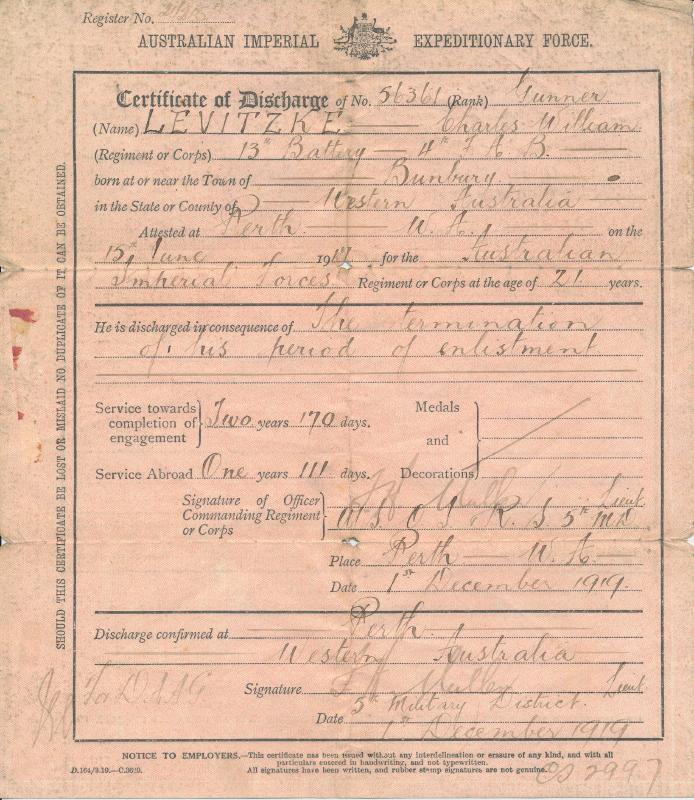 Register No.
AUSTRALIAN IMPERIAL EXPEDITIONARY FORCE.
Certificate of Discharge of No. 56361 (Rank) Gunner
(Name) LEVITZKE Charles William
(Regiment or Corps) 13th Battery 4th F.A.B.
born at or near the Town of Bunbury.
in the State or County of Western Australia
Attested at Perth W.A. on the
15th June 1917 for the Australian
Imperial Forces Regiment or Corps at the age of 21 years.
He is discharged in consequence of The termination
of his period of enlistment
Service towards completion of engagement } Two years 170 days.
Medals and Decorations
Service Abroad One years 111 days.
Signature of Officer Commanding Regiment or Corps } Lieut
5th M.D.
Place Perth W.A.
Date 1st December 1919.
Discharge confirmed at Perth.
Western Australia
Signature Lieut
5th Military District.
Date 1st December 1919
for D.A.A.G
SHOULD THIS CERTIFICATE BE LOST OR MISLAID NO DUPLICATE OF IT CAN BE OBTAINED.
NOTICE TO EMPLOYERS.—This certificate has been issued without any interdelineation or erasure of any kind, and with all
particulars entered in handwriting, and not typewritten.
D.164/3.19.—C.3629. All signatures have been written, and rubber stamp signatures are not genuine.
2997